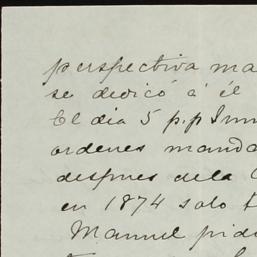 perspectiva ma
se dedicó á él
El dia 5 p.p
ordenes manda
despues dela
en 1874 solo
Manuel pidi